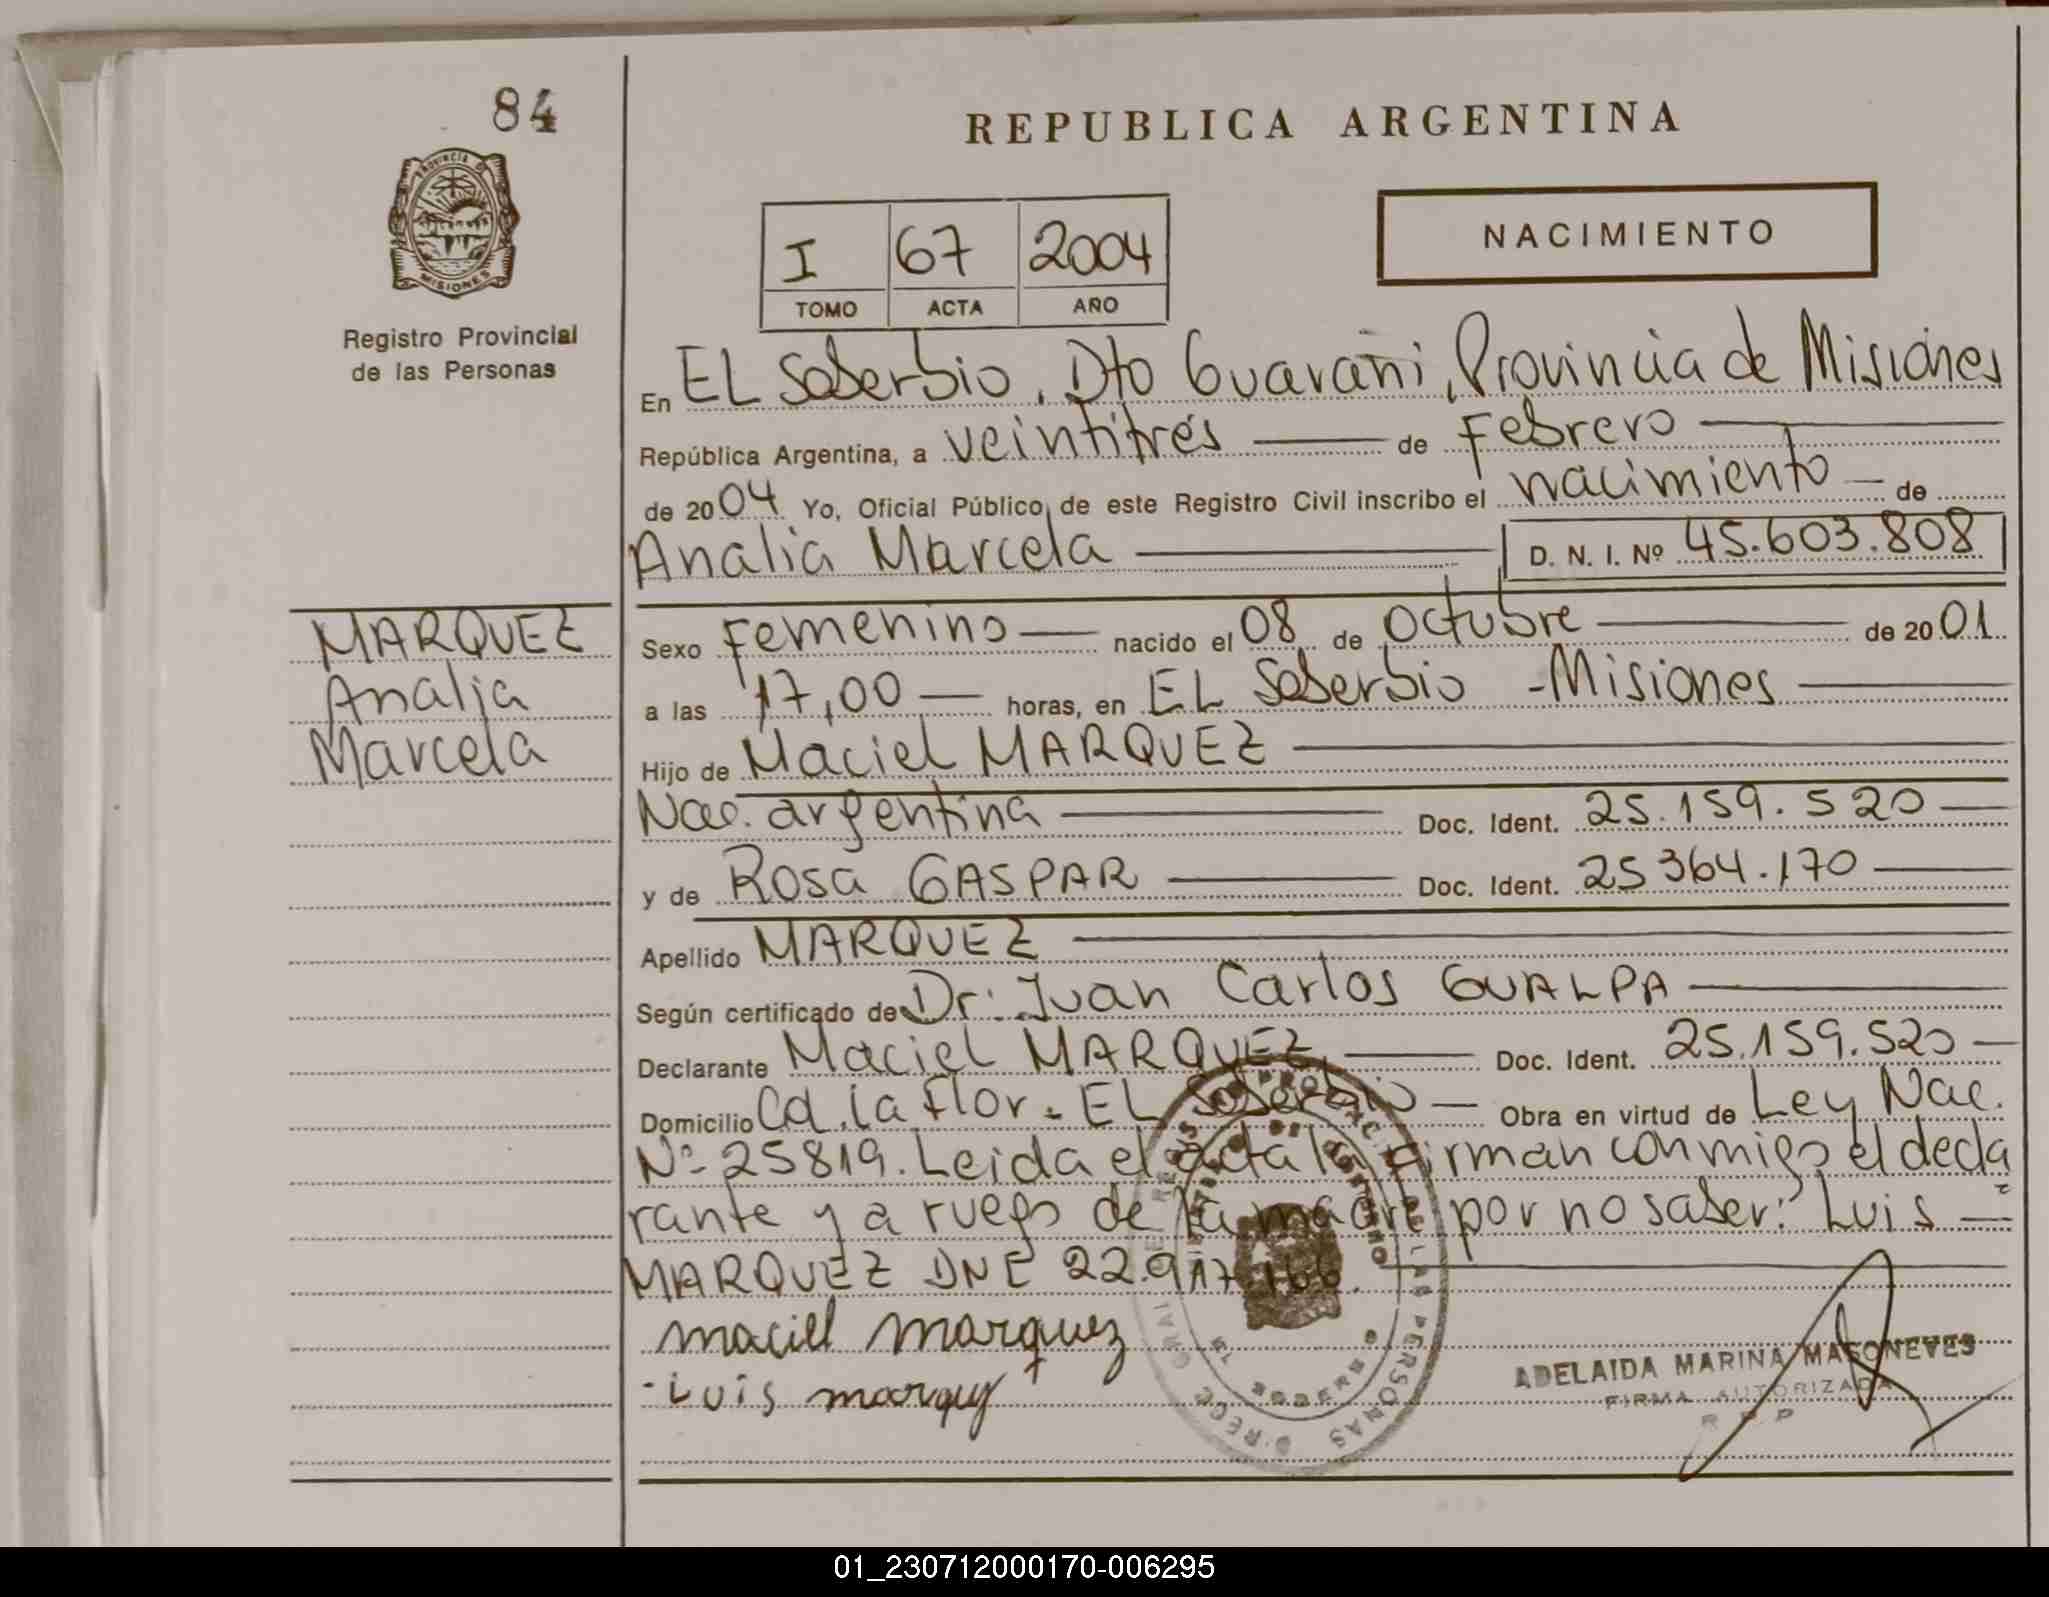 84
PROVINCIA DE
MISIONES
Registro Provincial
de las Personas
REPUBLICA ARGENTINA
I 67 2004
TOMO ACTA AÑO
NACIMIENTO
En EL Soberbio, Dto Guarani, Provincia de Misiones
República Argentina, a veintitrés de Febrero
de 2004 Yo, Oficial Público de este Registro Civil inscribo el nacimiento de
Analia Marcela D. N. I. Nº 45.603.808
MARQUEZ
Analia
Marcela
Sexo Femenino nacido el 08 de octubre de 2001
a las 17,00 horas, en EL Soberbio - Misiones
Hijo de Maciel MARQUEZ
Nac. argentina Doc. Ident. 25.159.520
y de Rosa GASPAR Doc. Ident. 25364.170
Apellido MARQUEZ
Según certificado de Dr. Juan Carlos GUALPA
Declarante Maciel MARQUEZ Doc. Ident. 25.159.520
Domicilio Cd. la Flor. EL Soberbio Obra en virtud de Ley Nac.
Nº 25819. Leida el acta la firman conmigo el decla
rante y a ruego de la madre por no saber: Luis
MARQUEZ DNI 22.917.166.
maciel marquez
Luis marquez
ADELAIDA MARINA MASONEVES
FIRMA AUTORIZADA
R P P
01_230712000170-006295